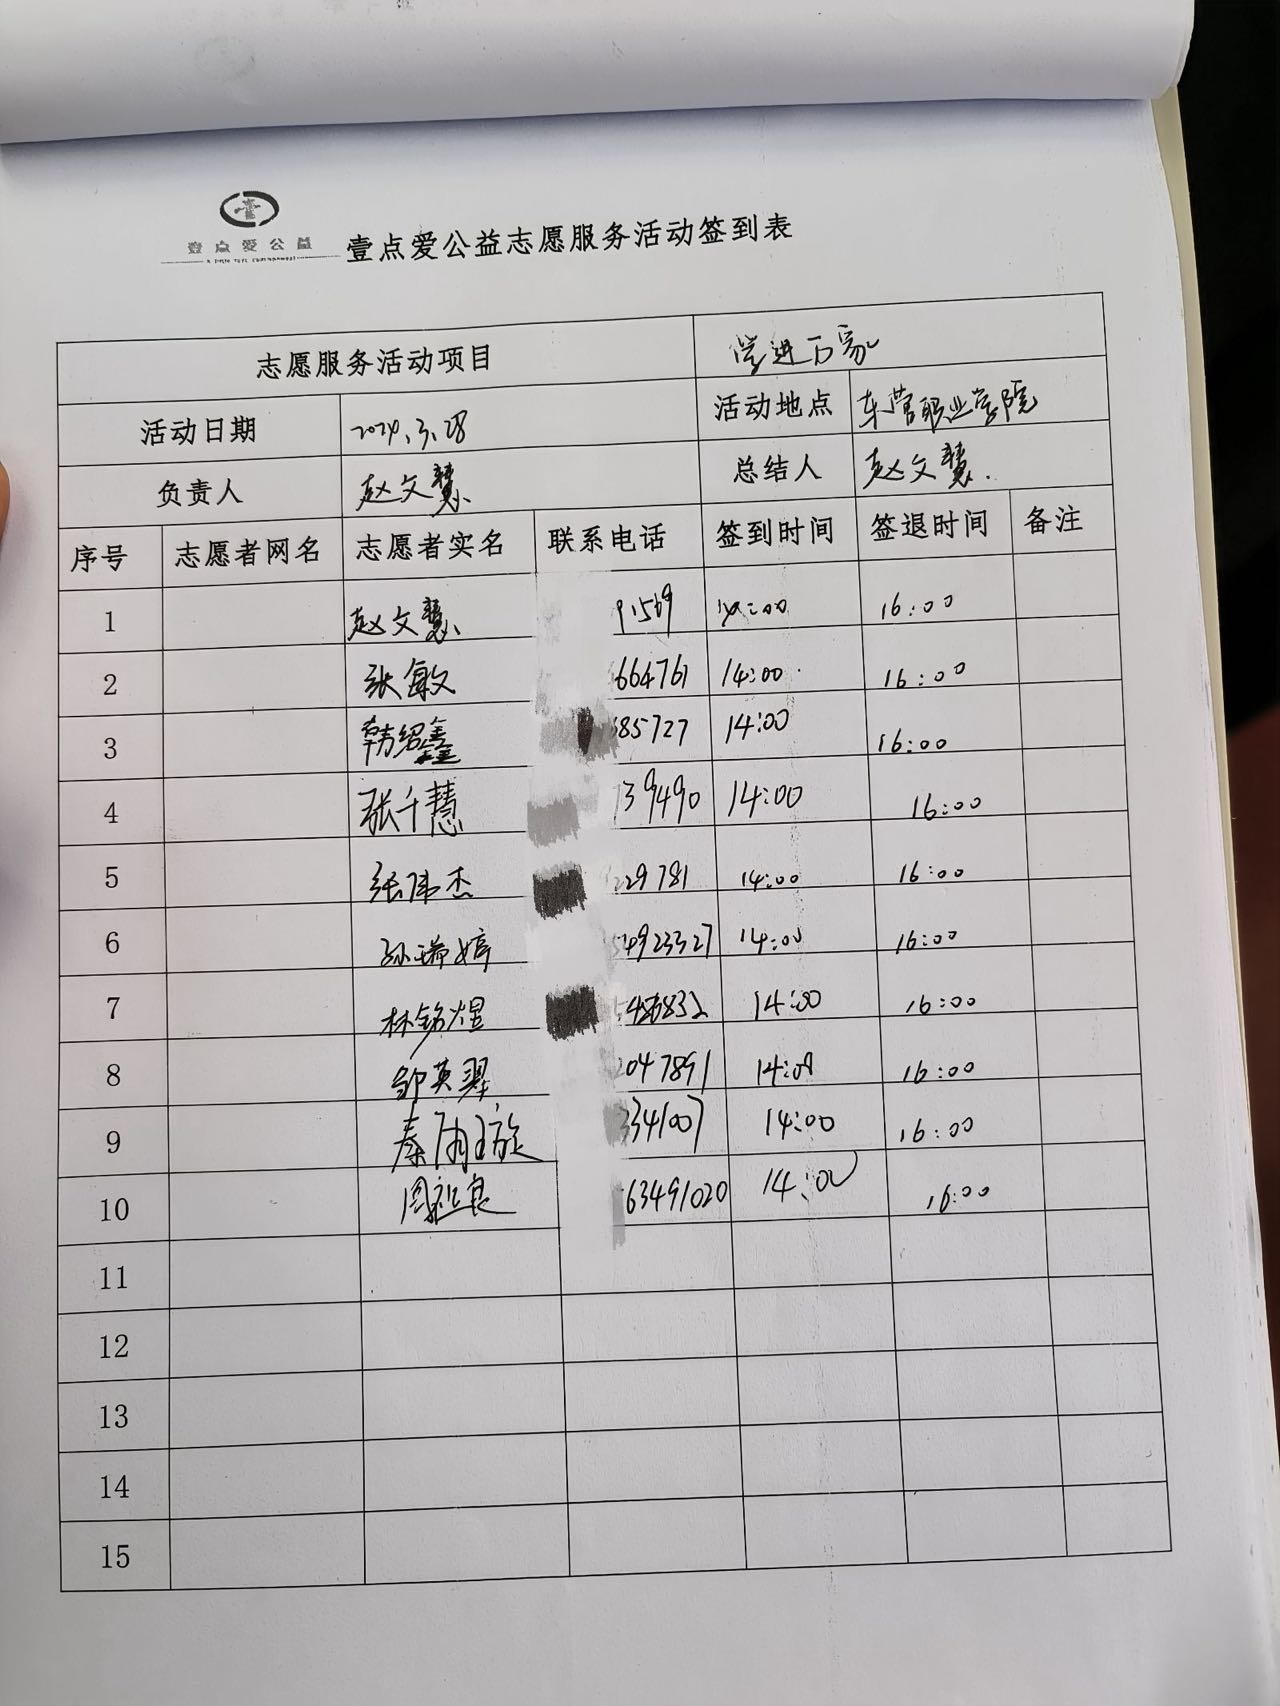 壹点爱公益
壹点爱公益志愿服务活动签到表
志愿服务活动项目 进万家
活动日期 2024.3.28 活动地点 东营职业学院
负责人 赵文慧 总结人 赵文慧.
序号 志愿者网名 志愿者实名 联系电话 签到时间 签退时间 备注
1 赵文慧 91569 14:00 16:00
2 张敏 664761 14:00 16:00
3 韩绍鑫 85727 14:00 16:00
4 张千慧 739490 14:00 16:00
5 张伟杰 229781 14:00 16:00
6 孙瑞婷 54923327 14:00 16:00
7 林铭煜 14:00 16:00
8 邹英翠 2047891 14:00 16:00
9 秦雨璇 3341007 14:00 16:00
10 周祖良 63491020 14:00 16:00
11
12
13
14
15